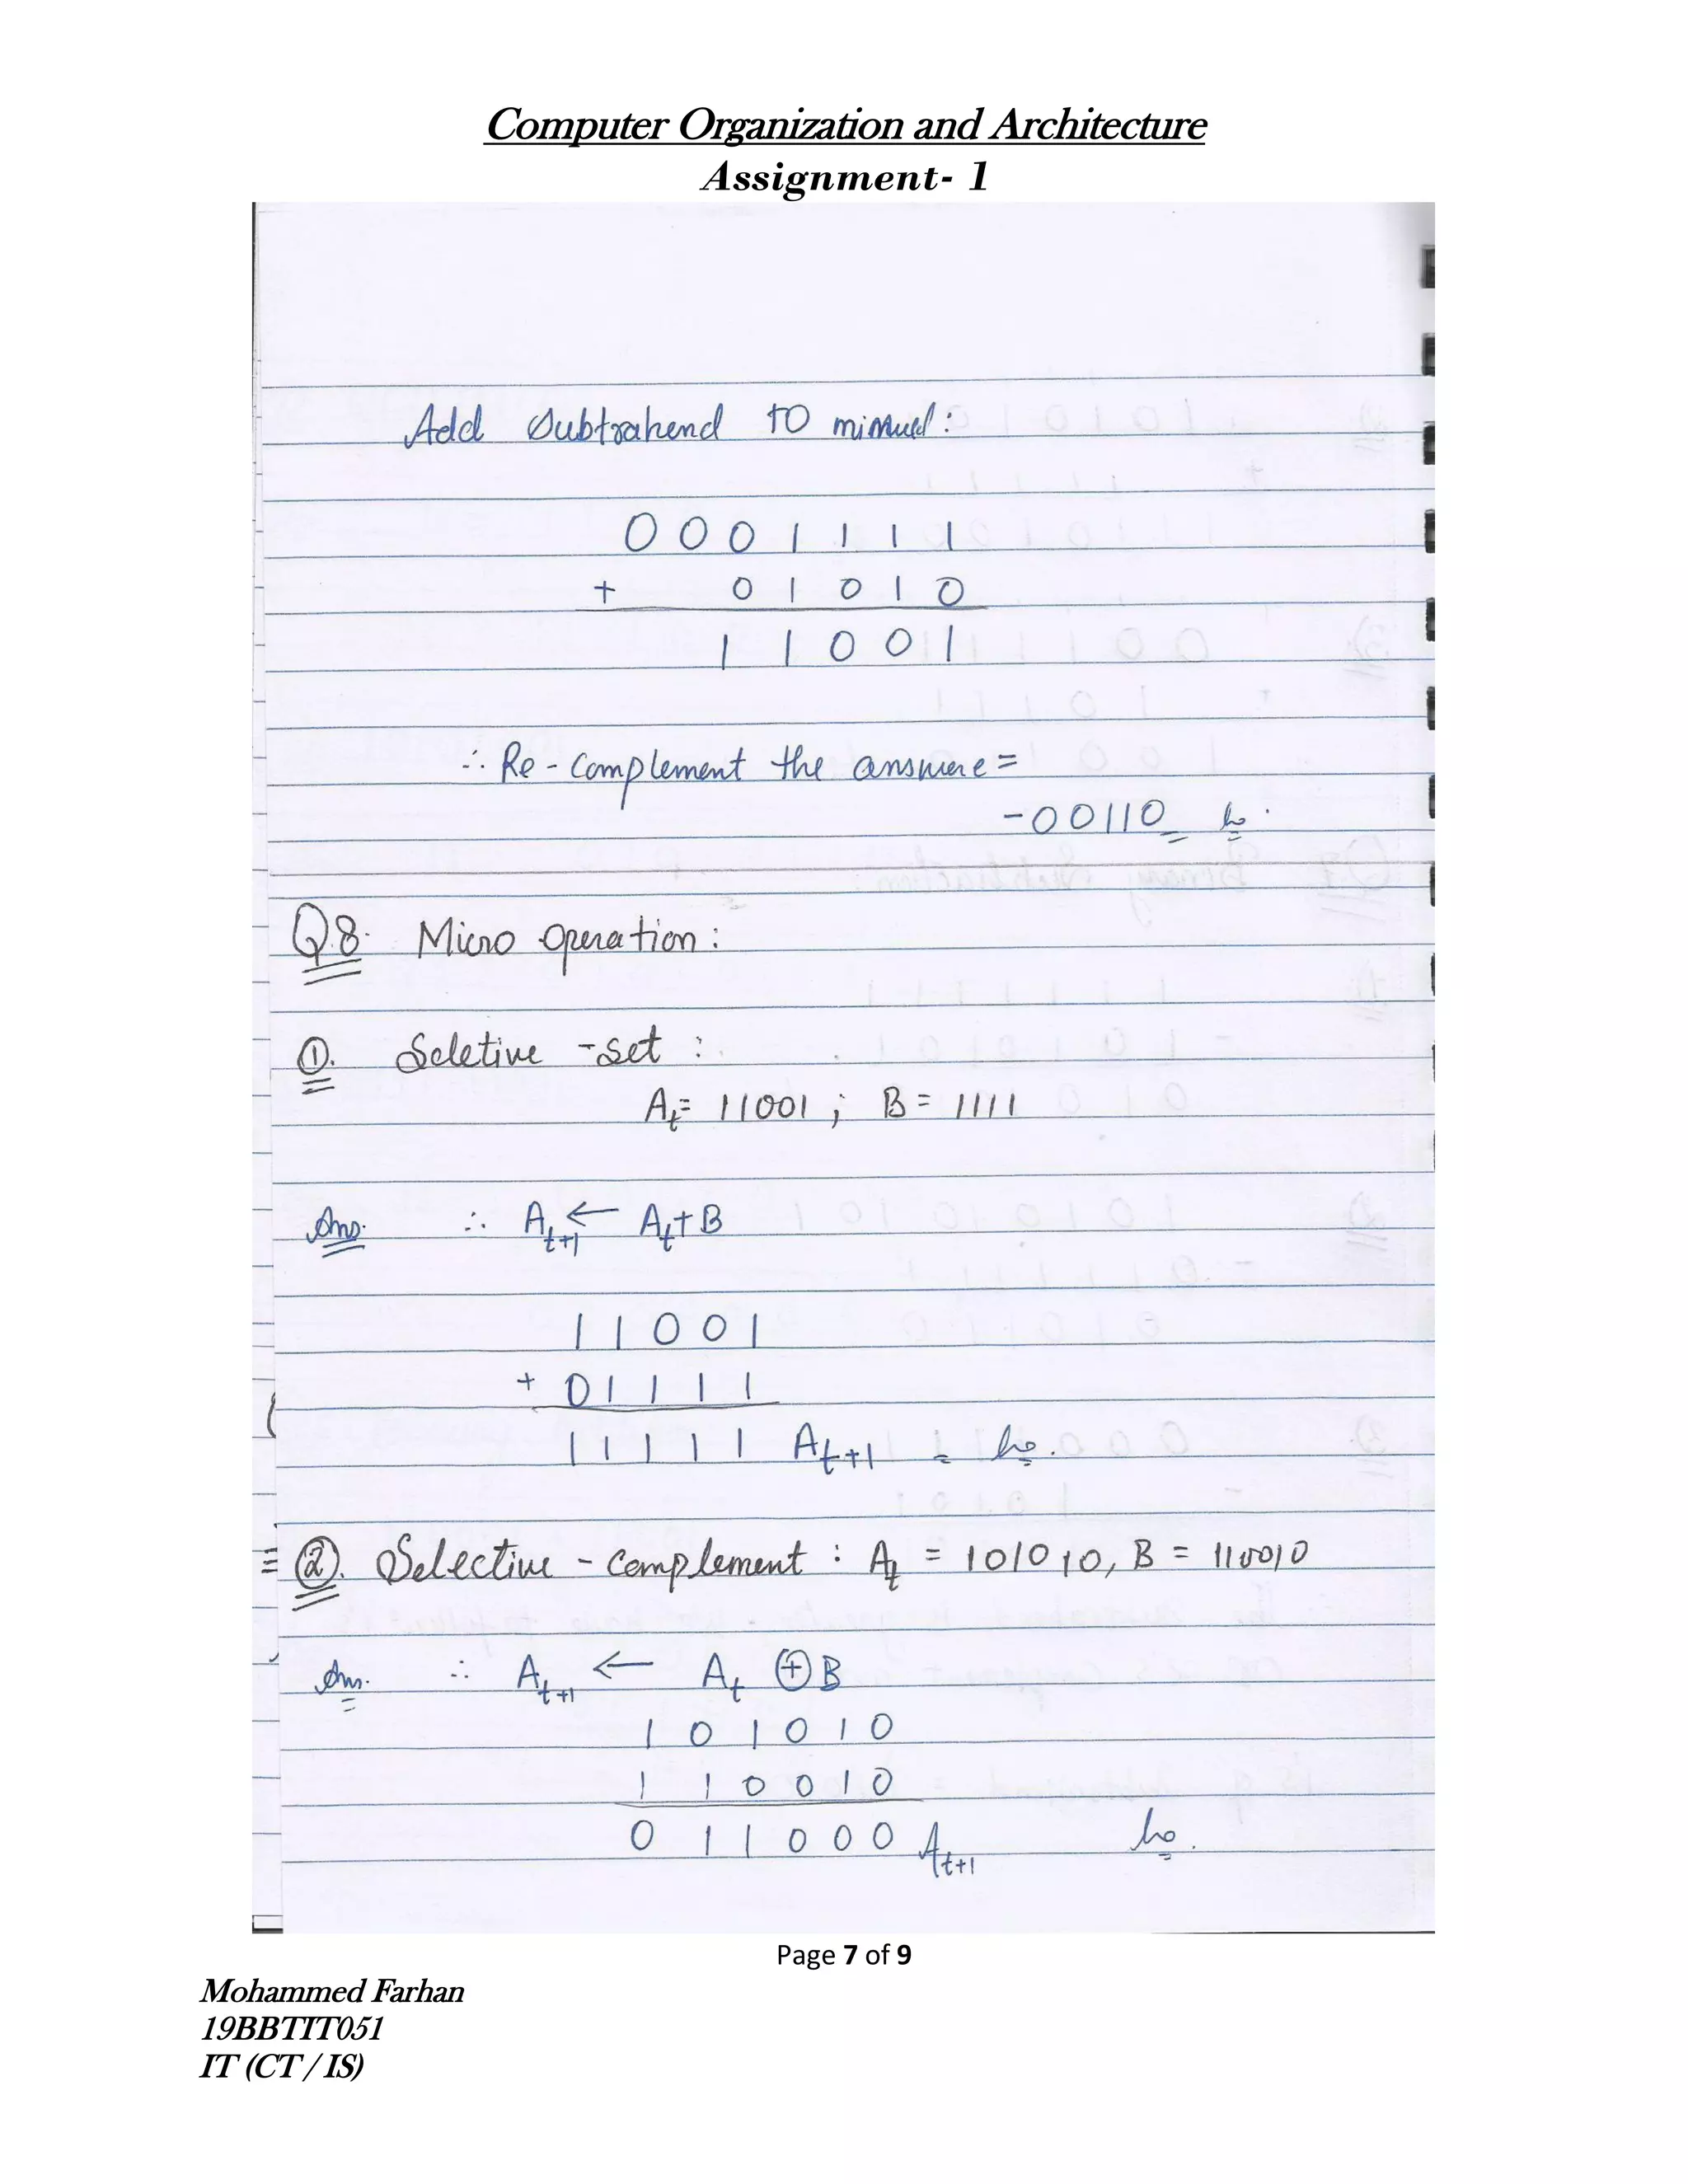 Computer Organization and Architecture
Assignment- 1
Add Subtrahend to :
0 0 0 1 1 1 1
+ 0 1 0 1 0
1 1 0 0 1
∴ Re-Complement the answere =
-00110
Q8. Micro operation :
①. Seletive -set :
At= 11001 ; B = 1111
Ans. ∴ At+1 ← At+B
1 1 0 0 1
+ 0 1 1 1 1
1 1 1 1 1 At+1
②. Selective - complement : At = 101010, B = 110010
Ans. ∴ At+1 ← At ⊕ B
1 0 1 0 1 0
1 1 0 0 1 0
0 1 1 0 0 0 At+1
Page 7 of 9
Mohammed Farhan
19BBTIT051
IT (CT / IS)